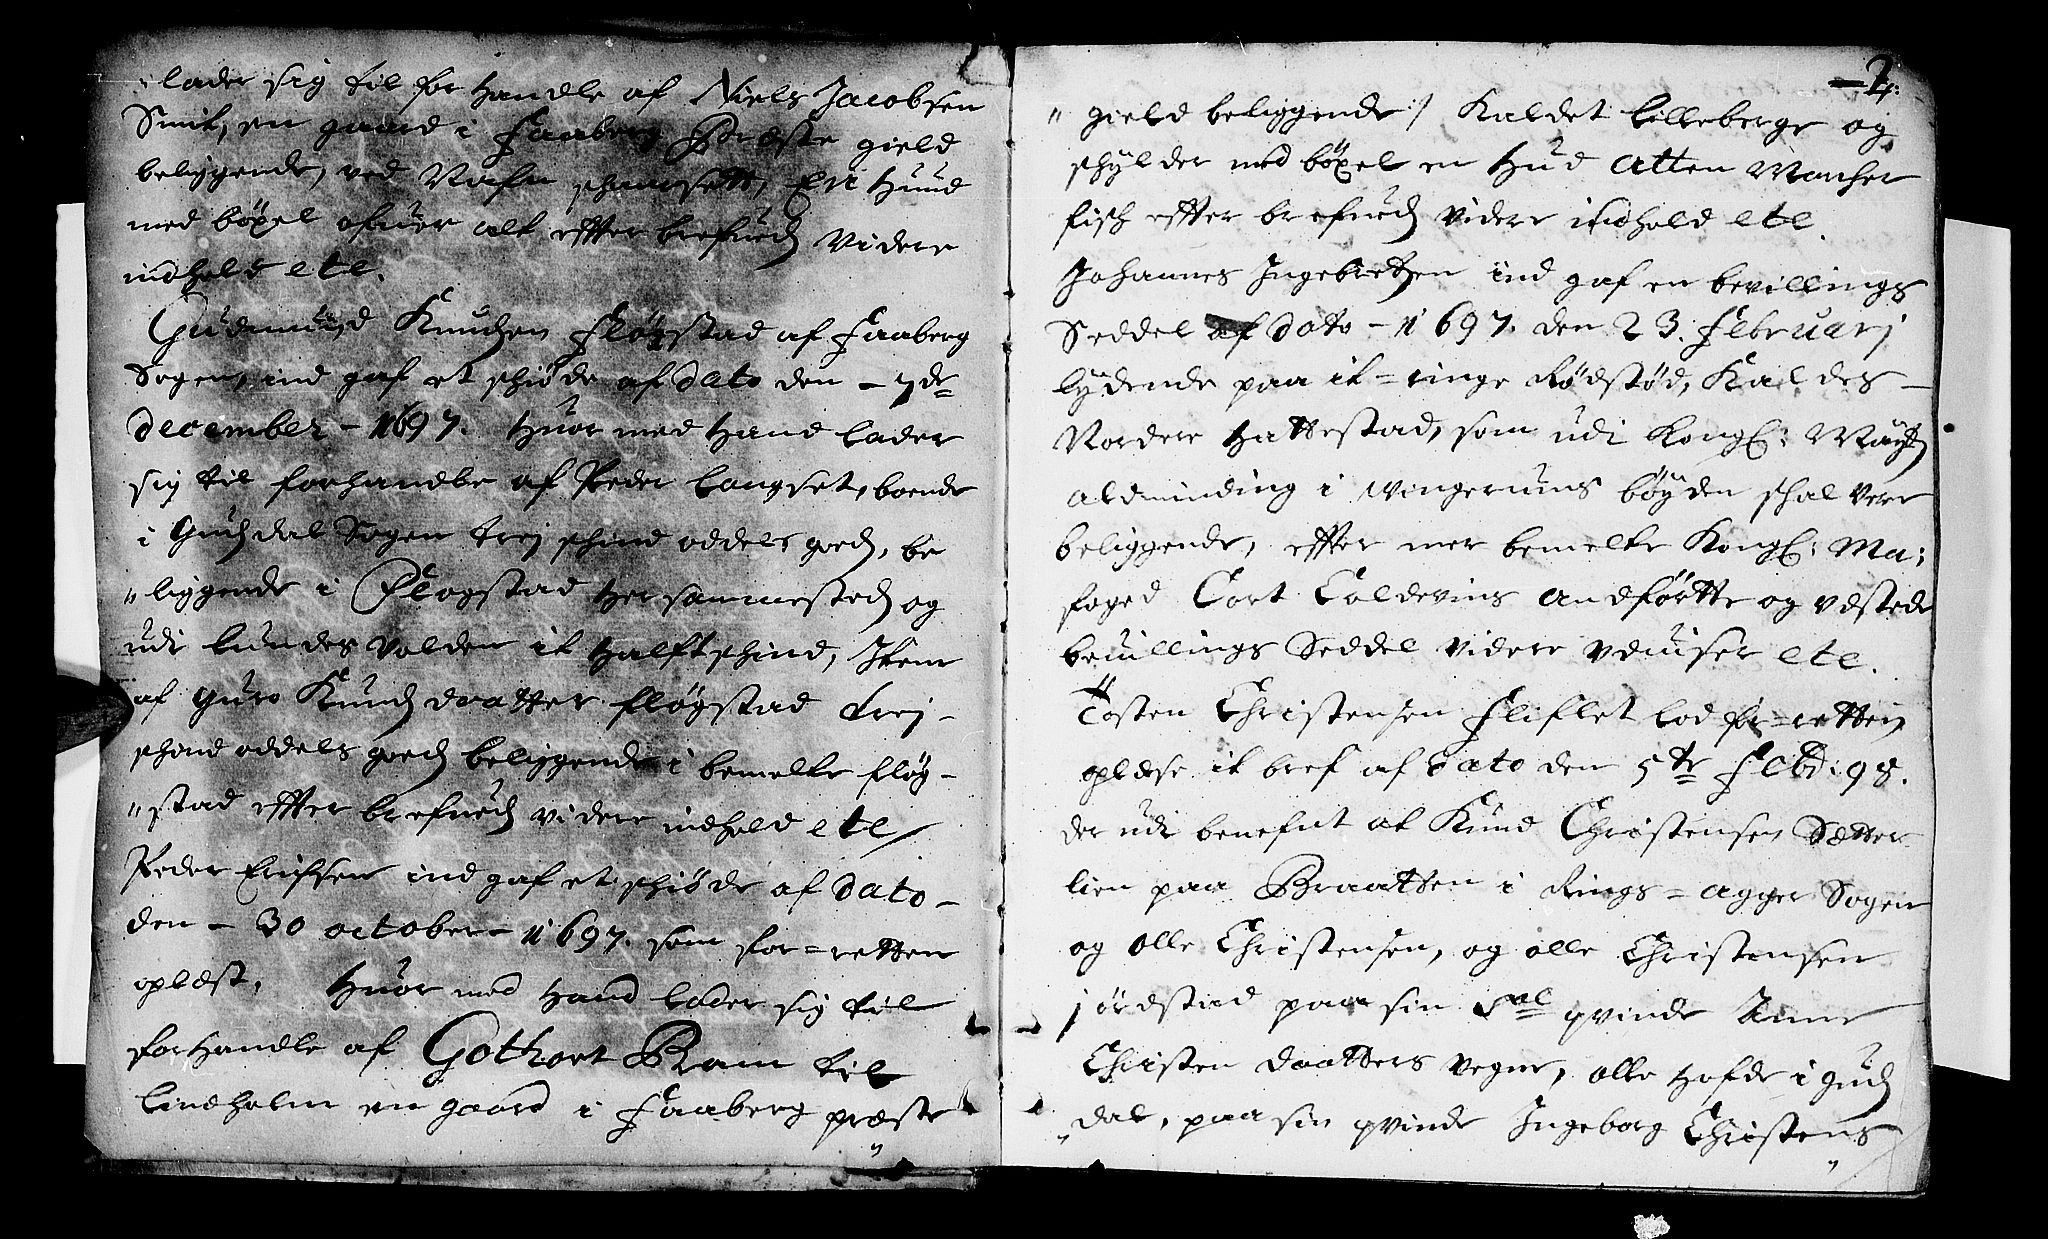 " lader sig til for handle af Niels Jacobsen
Smit, en gaard i Faaberg Præste gield
beliggende, ved Nafn schaarsett, En Huud
med böxel ofuer alt effter brefueds videre
indhold etc.
Gudmund Knudsen Flögstad af Faaberg
Sogen, ind gaf et schiöde af dato den - 7de
december - 1697. Huor med Hand lader
sig til forhandle af Peder Langset, boende
i Gudsdal Sogen trej schind oddels goeds, be
" liggende i Flogstad Hersammesteds og
udi Lundes Volden it Halft schind, Item
af Guro Knuds daatter flögstad trej -
schind oddels goeds beliggende i bemelte flög -
" stad effter brefueds videre indhold etc /
Peder Erichsen ind gaf et schiöde af dato -
den - 30 october - 1697. som for = retten
oplæst. Huor med Hand lader sig til
forhandle af Gothort Bram til
Lindholm en gaard i Faaberg præste
"
- 2.
" gield beliggende / Kaldet Lilleberge og
schylder med böxel en Hud Atten Marcher
fisch effter brefueds videre indhold etc.
Johannes Ingebretsen ind gaf en bevillings
Seddel af dato - 1697. den 23. Februarj
lydende paa it = ringe Rödstöd, Kaldes -
Nordere Hattestad, som udi Kongl: Mayts
aldminding i Wingerums böyden schal vere
beliggende, effter mer bemelte Kongl: Ma:
foged Cort Coldevins Andförtte og vdstede
beuillings Seddel videre vduiser etc.
Tosten Christensen Fliflet lod for = retten
oplæse it bref af dato den 5te Febr: 98.
der udi benefnt at Knud Christensen Sætter
lien paa Braatten i Rings = agger Sogen
og Olle Christensen, og olle Christensen
jördstad paa sin Sal qvinde Anne
Christen daatters vegne, olle Hofde i Guds
" dal, paa sin qvinde Ingeborg Christens
"